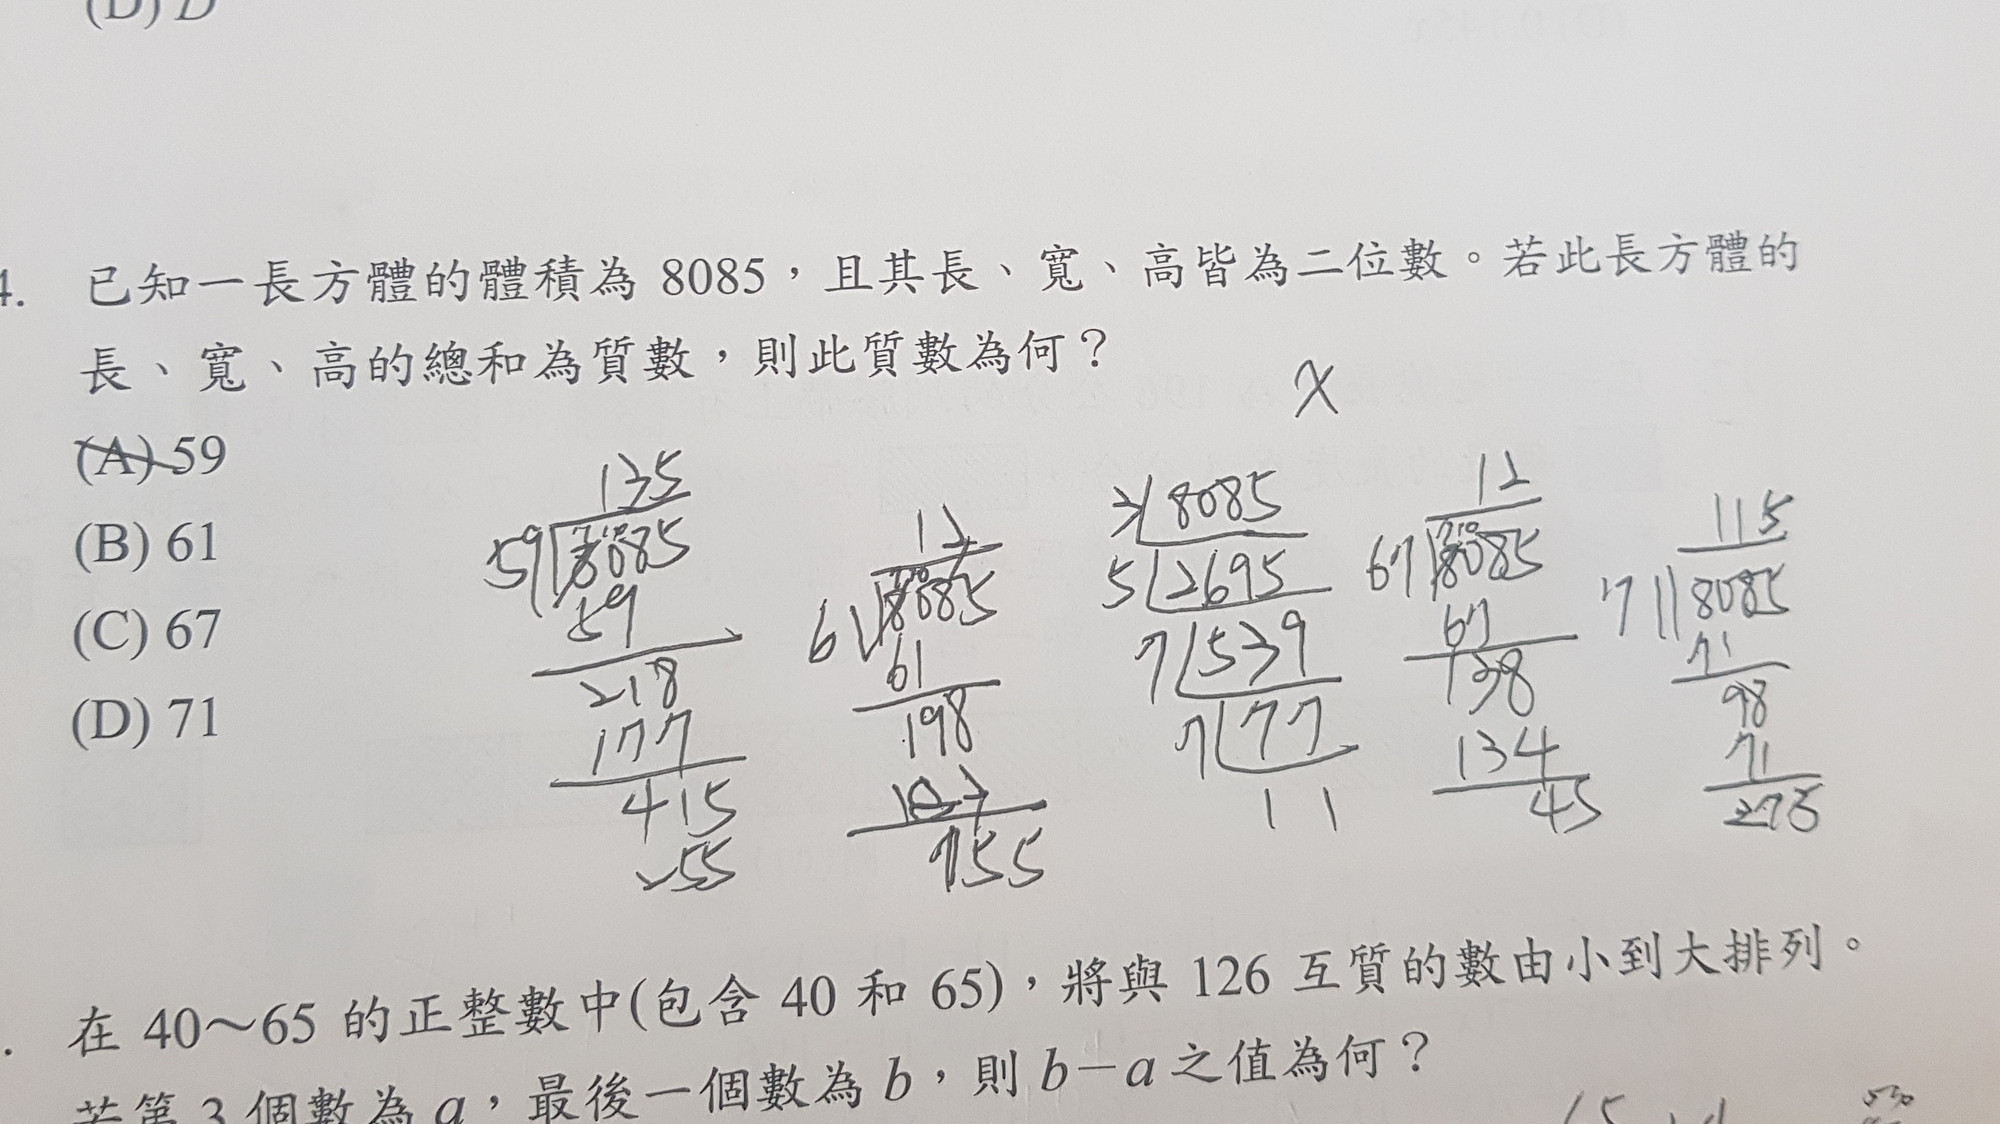 (D) D
4. 已知一長方體的體積為 8085，且其長、寬、高皆為二位數。若此長方體的
長、寬、高的總和為質數，則此質數為何？
X
(A) 59
(B) 61
(C) 67
(D) 71
135
59 8085
59
218
177
415
255
12
61 8085
61
198
755
3 8085
5 2695
7 539
7 77
11
12
67 8085
67
138
134
45
115
71 8085
71
98
71
275
在 40～65 的正整數中(包含 40 和 65)，將與 126 互質的數由小到大排列。
若第 3 個數為 a，最後一個數為 b，則 b－a 之值為何？